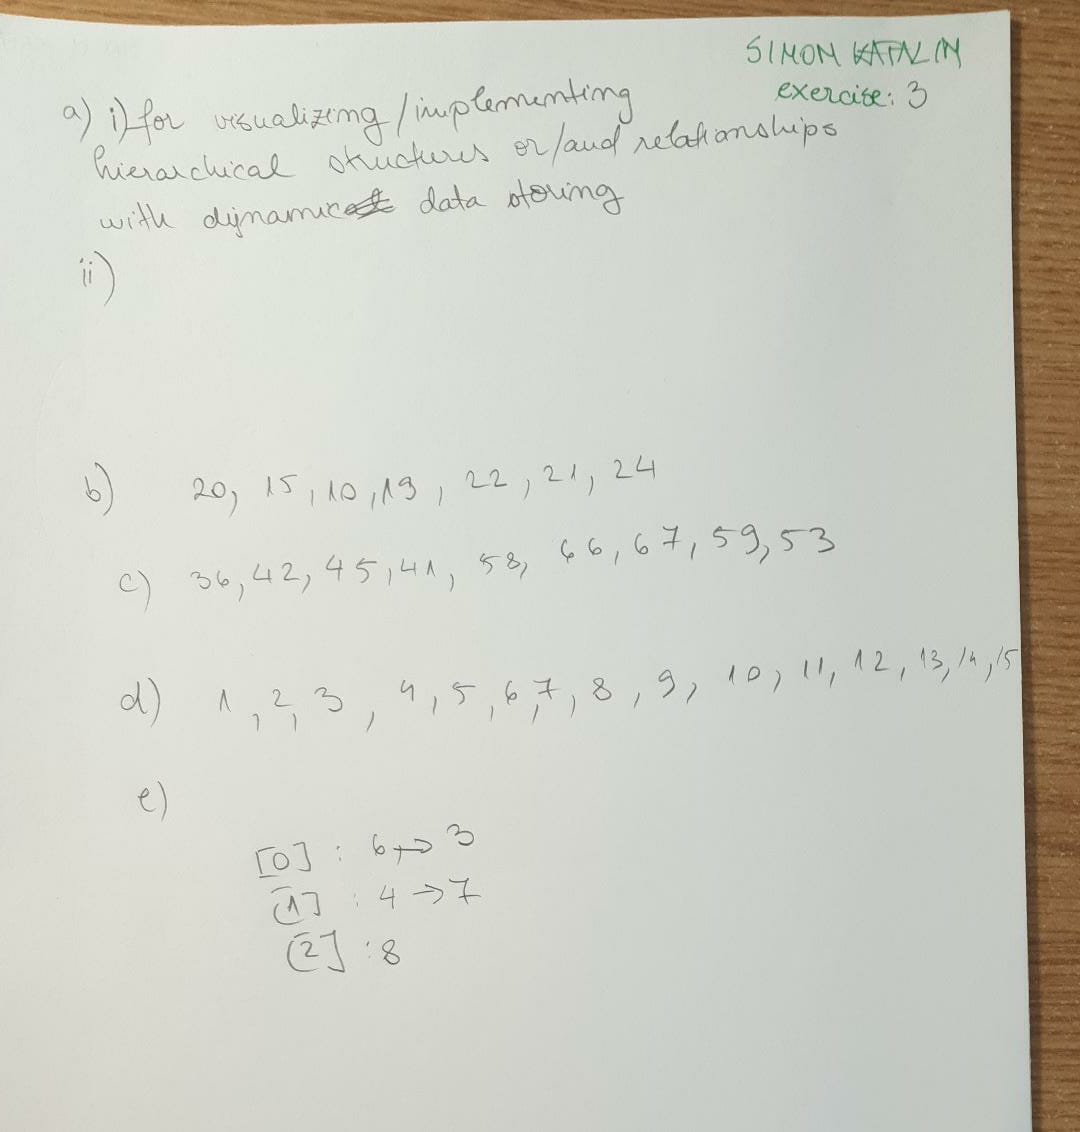 SIMON KATALIN
exercise: 3
a) i) for visualizing/implementing
hierarchical structures or/and relationships
with dynamic data storing
ii)
b) 20, 15, 10, 19, 22, 21, 24
c) 36, 42, 45, 41, 58, 66, 67, 59, 53
d) 1, 2, 3, 4, 5, 6, 7, 8, 9, 10, 11, 12, 13, 14, 15
e)
[0] : 6 → 3
[1] : 4 → 7
[2] : 8